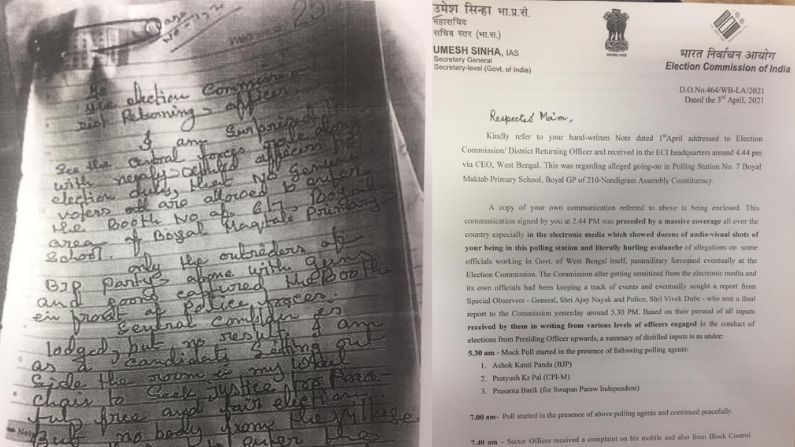 To
election Commission
Dist Returning officer
I am surprised to
See the Central forces
with newly election
election duty, that No genuine
voters are allowed to enter
the Booth No 6, 7, Boyal
area of Boyal Maqtab Primary
School.
only the outsiders of
BJP Party alone with guns
and goons captured the Booth
in front of Police forces.
Several complain is
lodged, but no result. I am
as a candidate sitting out
side the room in my wheel
chair to seek justice for Peace-
ful free and fair election.
But no body from the
उमेश सिन्हा भा.प्र.से.
महासचिव
सचिव स्तर (भा.स.)
UMESH SINHA, IAS
Secretary General
Secretary-level (Govt. of India)
भारत निर्वाचन आयोग
Election Commission of India
D.O.No.464/WB-LA/2021
Dated the 3rd April, 2021
Respected Ma'm,
Kindly refer to your hand-written Note dated 1st April addressed to Election
Commission/ District Returning Officer and received in the ECI headquarters around 4.44 pm
via CEO, West Bengal. This was regarding alleged going-on in Polling Station No. 7 Boyal
Maktab Primary School, Boyal GP of 210-Nandigram Assembly Constituency.
A copy of your own communication referred to above is being enclosed. This
communication signed by you at 2.44 PM was preceded by a massive coverage all over the
country especially in the electronic media which showed dozens of audio-visual shots of
your being in this polling station and literally hurling avalanche of allegations on some
officials working in Govt. of West Bengal itself, paramilitary forces and eventually at the
Election Commission. The Commission after getting sensitized from the electronic media and
its own officials had been keeping a track of events and eventually sought a report from
Special Observers - General, Shri Ajay Nayak and Police, Shri Vivek Dube - who sent a final
report to the Commission yesterday around 5.30 PM. Based on their perusal of all inputs
received by them in writing from various levels of officers engaged in the conduct of
elections from Presiding Officer upwards, a summary of distilled inputs is as under:
5.30 am - Mock Poll started in the presence of following polling agents:
1. Ashok Kanti Panda (BJP)
2. Pratyush Kr Pal (CPI-M)
3. Prasanta Barik (for Swapan Paraw Independent)
7.00 am- Poll started in the presence of above polling agents and continued peacefully.
7.40 am - Sector Officer received a complaint on his mobile and also from Block Control